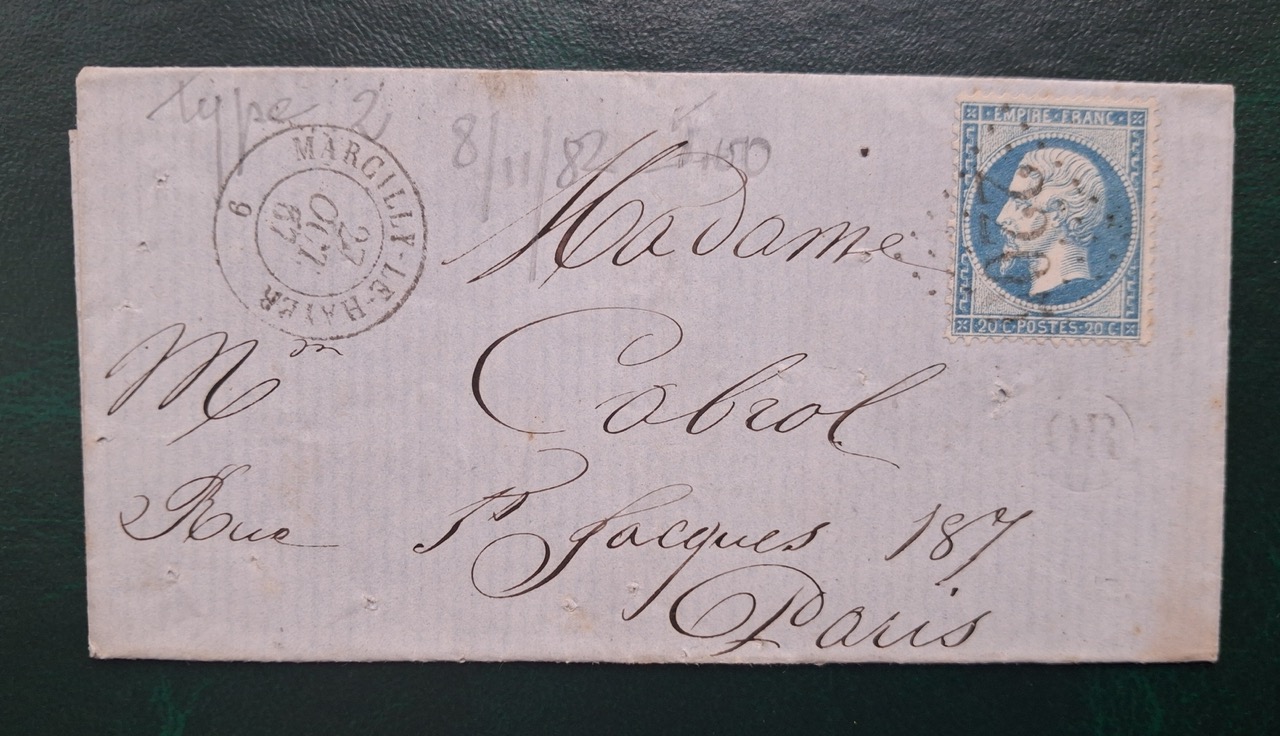 type 2
8/11/82
MARCILLY-LE-HAYER
6
27
OCT
67
EMPIRE·FRANC·
20 C·POSTES·20 C
Madame
Mm Cabrol
Rue St Jacques 187
Paris